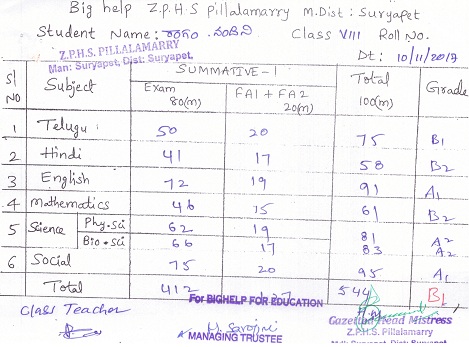 Big help Z.P.H.S pillalamarry m.Dist: Suryapet
Student Name: Class VIII Roll No.
Z.P.H.S. PILLALAMARRY
Man: Suryapet, Dist: Suryapet. Dt: 10/11/2017
Sl NO Subject SUMMATIVE-1 Total 100(m) Grade
Exam 80(m) FA1+FA2 20(m)
1 Telugu 50 20 75 B1
2 Hindi 41 17 58 B2
3 English 72 19 91 A1
4 mathematics 46 15 61 B2
5 Science Phy.sci 62 19 81 A2
Bio.sci 66 17 83 A2
6 Social 75 20 95 A1
Total 412 544 B1
For BIGHELP FOR EDUCATION
Class Teacher Gazetted Head Mistress
M. Sarojini Z.P.H.S. Pillalamarry
MANAGING TRUSTEE